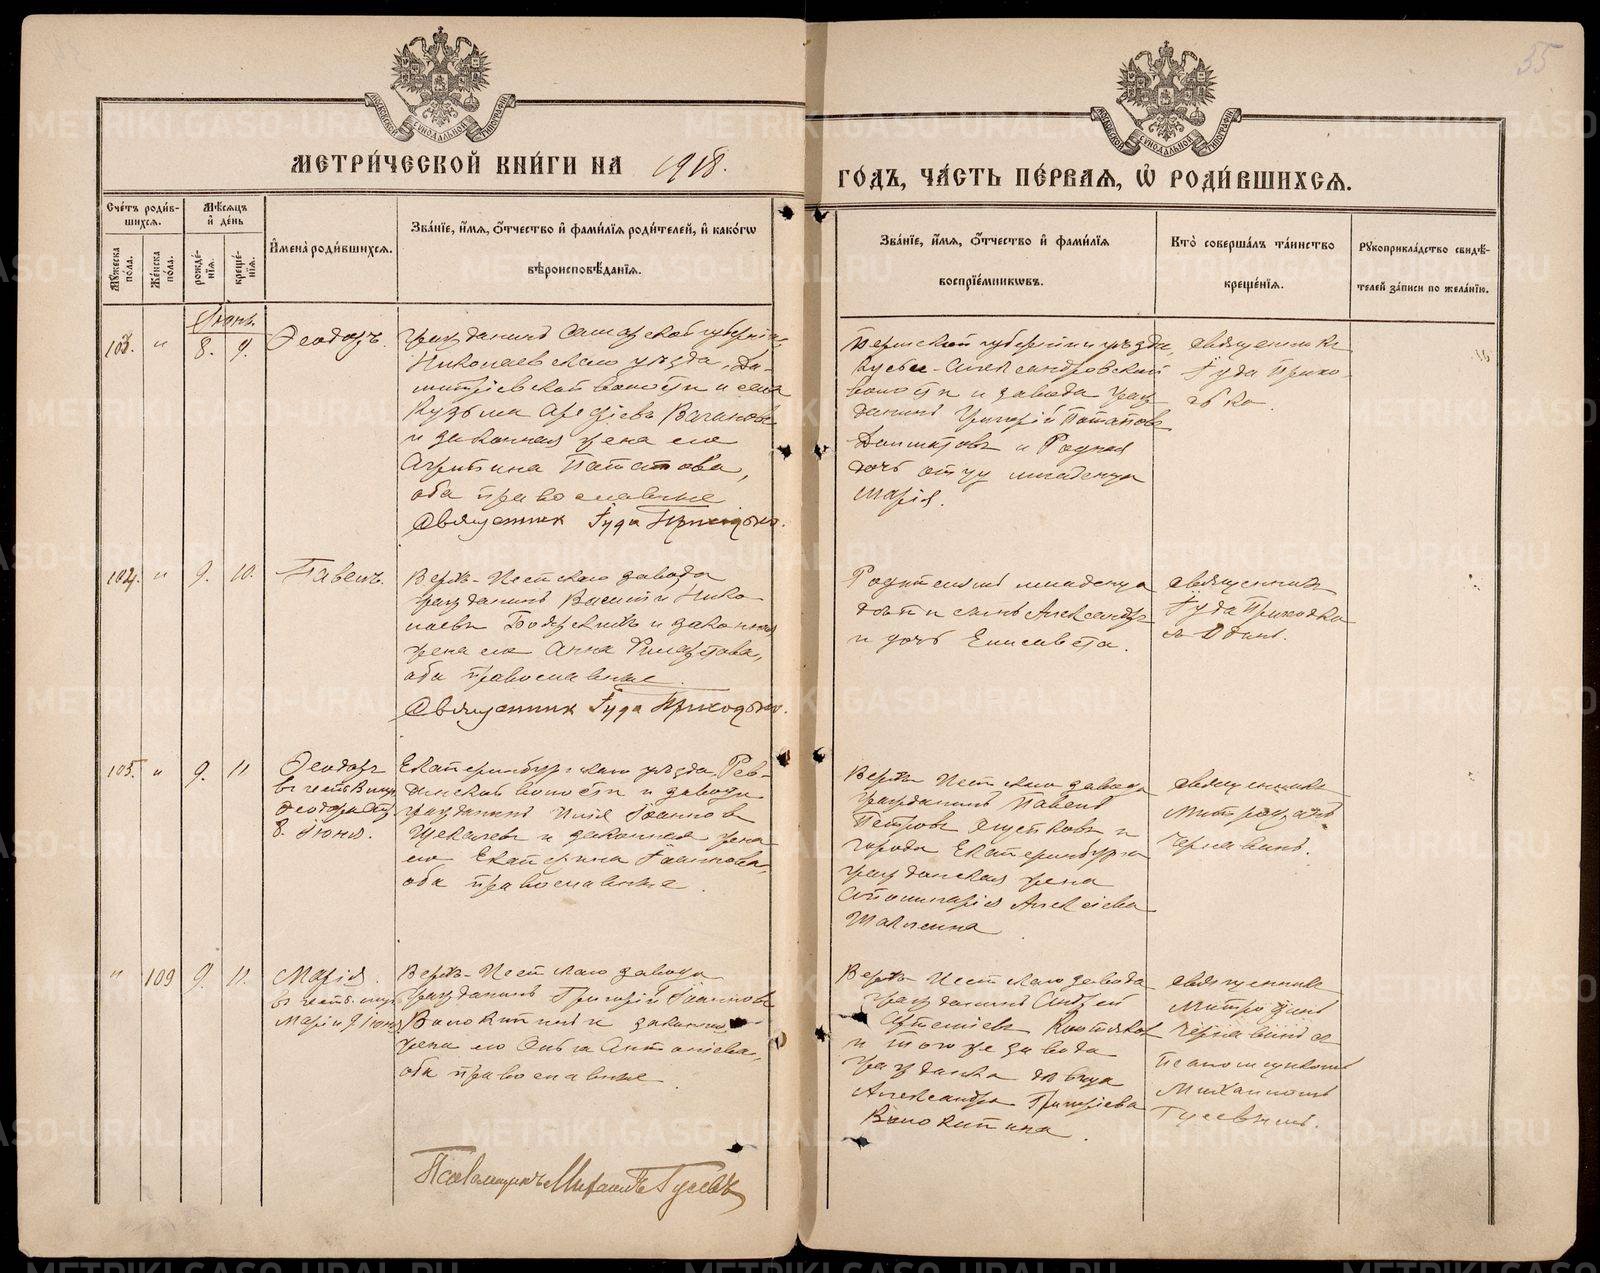 35
МОСКОВСКОЙ СИНОДАЛЬНОЙ ТИПОГРАФІИ
МОСКОВСКОЙ СИНОДАЛЬНОЙ ТИПОГРАФІИ
МЕТРИ́ЧЕСКОЙ КНИ́ГИ НА 1918.
ГО́ДЪ, ЧА́СТЬ ПЕ́РВАЯ, Ѡ҆ РОДИ́ВШИХСЯ.
Сче́тъ роди́в-
шихся.
Мѣ́сяцъ
и҆ де́нь
Му́жеска по́ла.
Же́нска по́ла.
рожде́-
нїя.
креще́-
нїя.
И҆мена̀ роди́вшихся.
Зва́нїе, и҆́мя, ѻ҆́тчество и҆ фами́лїя роди́телей, и҆ како́гѡ
вѣроисповѣ́данїя.
Зва́нїе, и҆́мя, ѻ҆́тчество и҆ фами́лїя
воспрїе́мникѡвъ.
Кто̀ соверша́лъ та́инство
креще́нїя.
Рукоприкла́дство свидѣ́-
телей за́писи по жела́нїю.
Іюнь.
103. " 8. 9. Ѳеодоръ.
гражданинъ Самарской губерніи,
Николаевскаго уѣзда, Ди-
митріевской волости и села
Кузьма
и законная жена его
Агрипина Патапова,
оба православные
Священникъ Іуда Приходько.
Пермской губерніи и уѣзда,
Кусье-Александровской
волости и завода граж
данинъ Григорій Потаповъ
и Родная
дочь отцу младенца
Марія.
священникъ
Іуда Прихо-
дько
104. " 9. 10. Павелъ.
Верхъ-Исетскаго завода
гражданинъ Василій Нико
лаевъ и законная
жена его Анна
оба православные.
Священникъ Іуда Приходько.
Родителямъ младенца
дѣти сынъ Александръ
и дочь Елисавета.
священникъ
Іуда Приходько
единъ.
105. " 9. 11 Ѳеодоръ
въ честь
8. Іюня.
Екатеринбургскаго уѣзда, Рев-
динской волости и завода
гражданинъ Илія Іоанновъ
и законная жена
его Екатерина Іоаннова,
оба православные.
Верхъ Исетскаго завода
гражданинъ Павелъ
Петровъ и
города Екатеринбурга
гражданская жена
Апполинарія Алексіева
священникъ
Митрофанъ
Чернавинъ.
" 109 9. 11. Марія
въ честь
Маріи 9 Іюня
Верхъ-Исетскаго завода
гражданинъ Григорій Іоанновъ
Волокитинъ и законная
жена его Ольга Антоніева,
оба православные.
Верхъ Исетскаго завода
гражданинъ Андрей
Артеміевъ
и того же завода
гражданка дѣвица
Александра Григоріева
Волокитина.
священникъ
Митрофанъ
Чернавинъ съ
Псаломщикомъ
Михаиломъ
Гусевымъ.
Псаломщикъ Михаилъ Гусевъ
METRIKI.GASO-URAL.RU